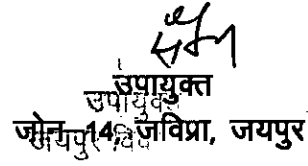 उपायुक्त
उपायुक्त
जोन 14, जविप्रा, जयपुर